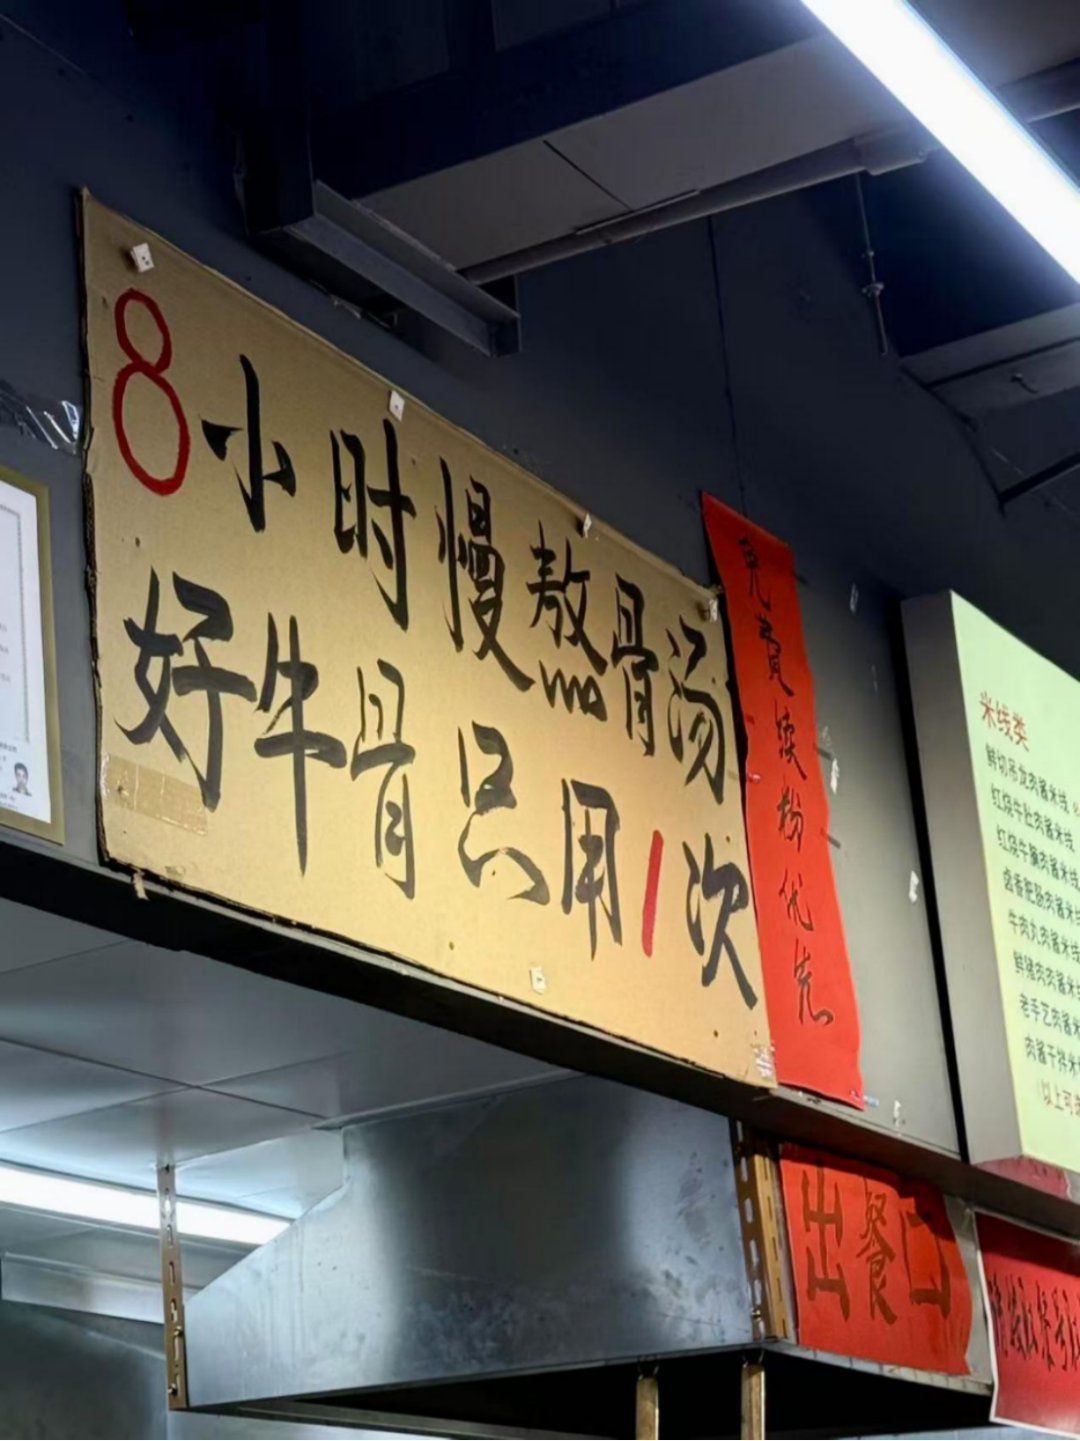 8小时慢熬骨汤
好牛骨只用1次
免费续粉优先
米线类
鲜切吊龙肉酱米线
红烧牛肚肉酱米线
红烧牛腩肉酱米线
卤香肥肠肉酱米线
牛肉丸肉酱米线
鲜猪肉肉酱米线
老手艺肉酱米线
肉酱干拌米线
（以上可
出餐口